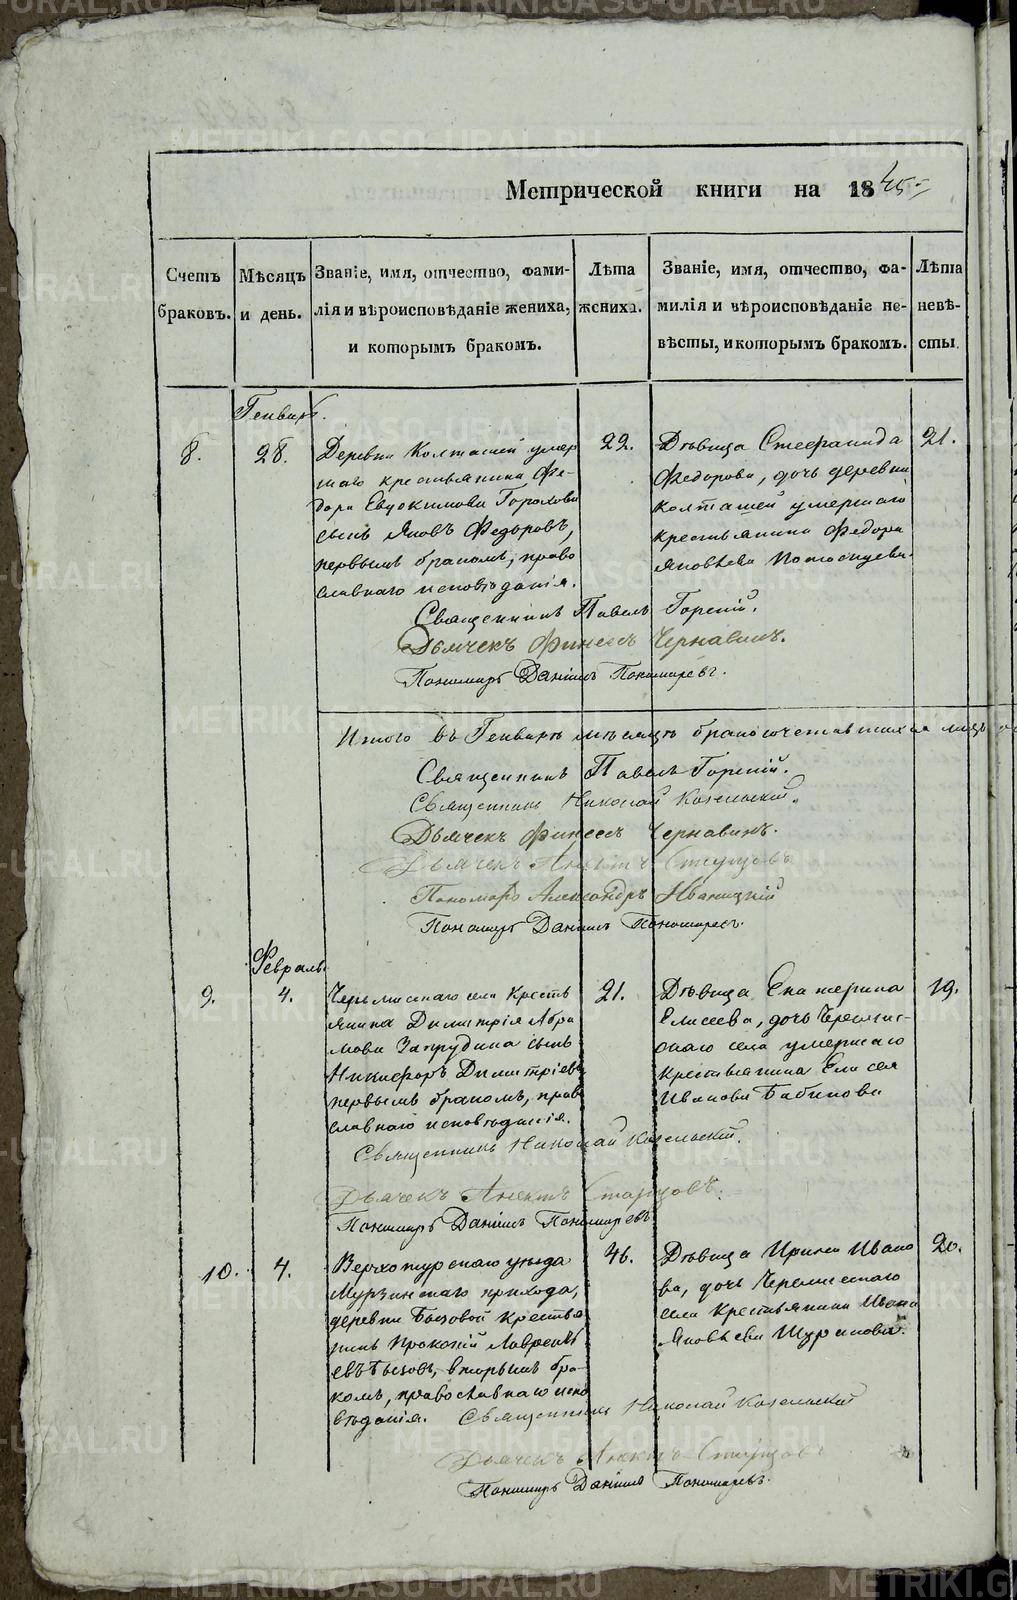 Метрической книги на 1845
Счетъ браковъ.
Мѣсяцъ и день.
Званіе, имя, отчество, фами-
лія и вѣроисповѣданіе жениха,
и которымъ бракомъ.
Лѣта
жениха.
Званіе, имя, отчество, фа-
милія и вѣроисповѣданіе не-
вѣсты, и которымъ бракомъ.
Лѣта
невѣ-
сты.
Генварь.
8.
28.
Деревни Колташей умер
шаго крестьянина Фе-
дора Евдокимова Горохова
сынъ Яковъ Федоровъ,
первымъ бракомъ, право
славнаго исповѣданія.
22.
Дѣвица Стефанида
Федорова, дочь деревни
Колташей умершаго
крестьянина Федора
Яковлева
21.
Священникъ Павелъ Горскій.
Дьячекъ Финеесъ Чернавинъ.
Пономарь Даніилъ Пономаревъ.
Итого въ Генварѣ мѣсяцѣ бракосочетавшихся лицъ
Священникъ Павелъ Горскій.
Священникъ Николай Козельскій.
Дьячекъ Финеесъ Чернавинъ.
Дьячекъ Стариовъ
Пономарь Александръ Иваницкій
Пономарь Даніилъ Пономаревъ.
Февраль.
9.
4.
Черемисскаго села кресть
янина Димитрія Абра
мова Запрудина сынъ
Никифоръ Димитріевъ
первымъ бракомъ, прав
славнаго исповѣданія.
21.
Дѣвица Екатерина
Елисеева, дочь Черемис-
скаго села умершаго
крестьянина Елисея
Иванова Бабинова
19.
Священникъ Николай Козельскій.
Дьячекъ
Пономарь Даніилъ Пономаревъ
10.
4.
Верхотурскаго уѣзда
Мурзинскаго прихода,
деревни Бызовой крестья
нинъ Прокопій Лаврентъ
евъ Бызовъ, вторымъ бра-
комъ, православнаго испо
вѣданія.
46.
Дѣвица Ирина Ивано
ва, дочь Черемисскаго
села крестьянина Ивана
Яковлева Шурыкова.
20.
Священникъ Николай Козельскій
Дьячекъ
Пономарь Даніилъ Пономаревъ.
METRIKI.GASO-URAL.RU